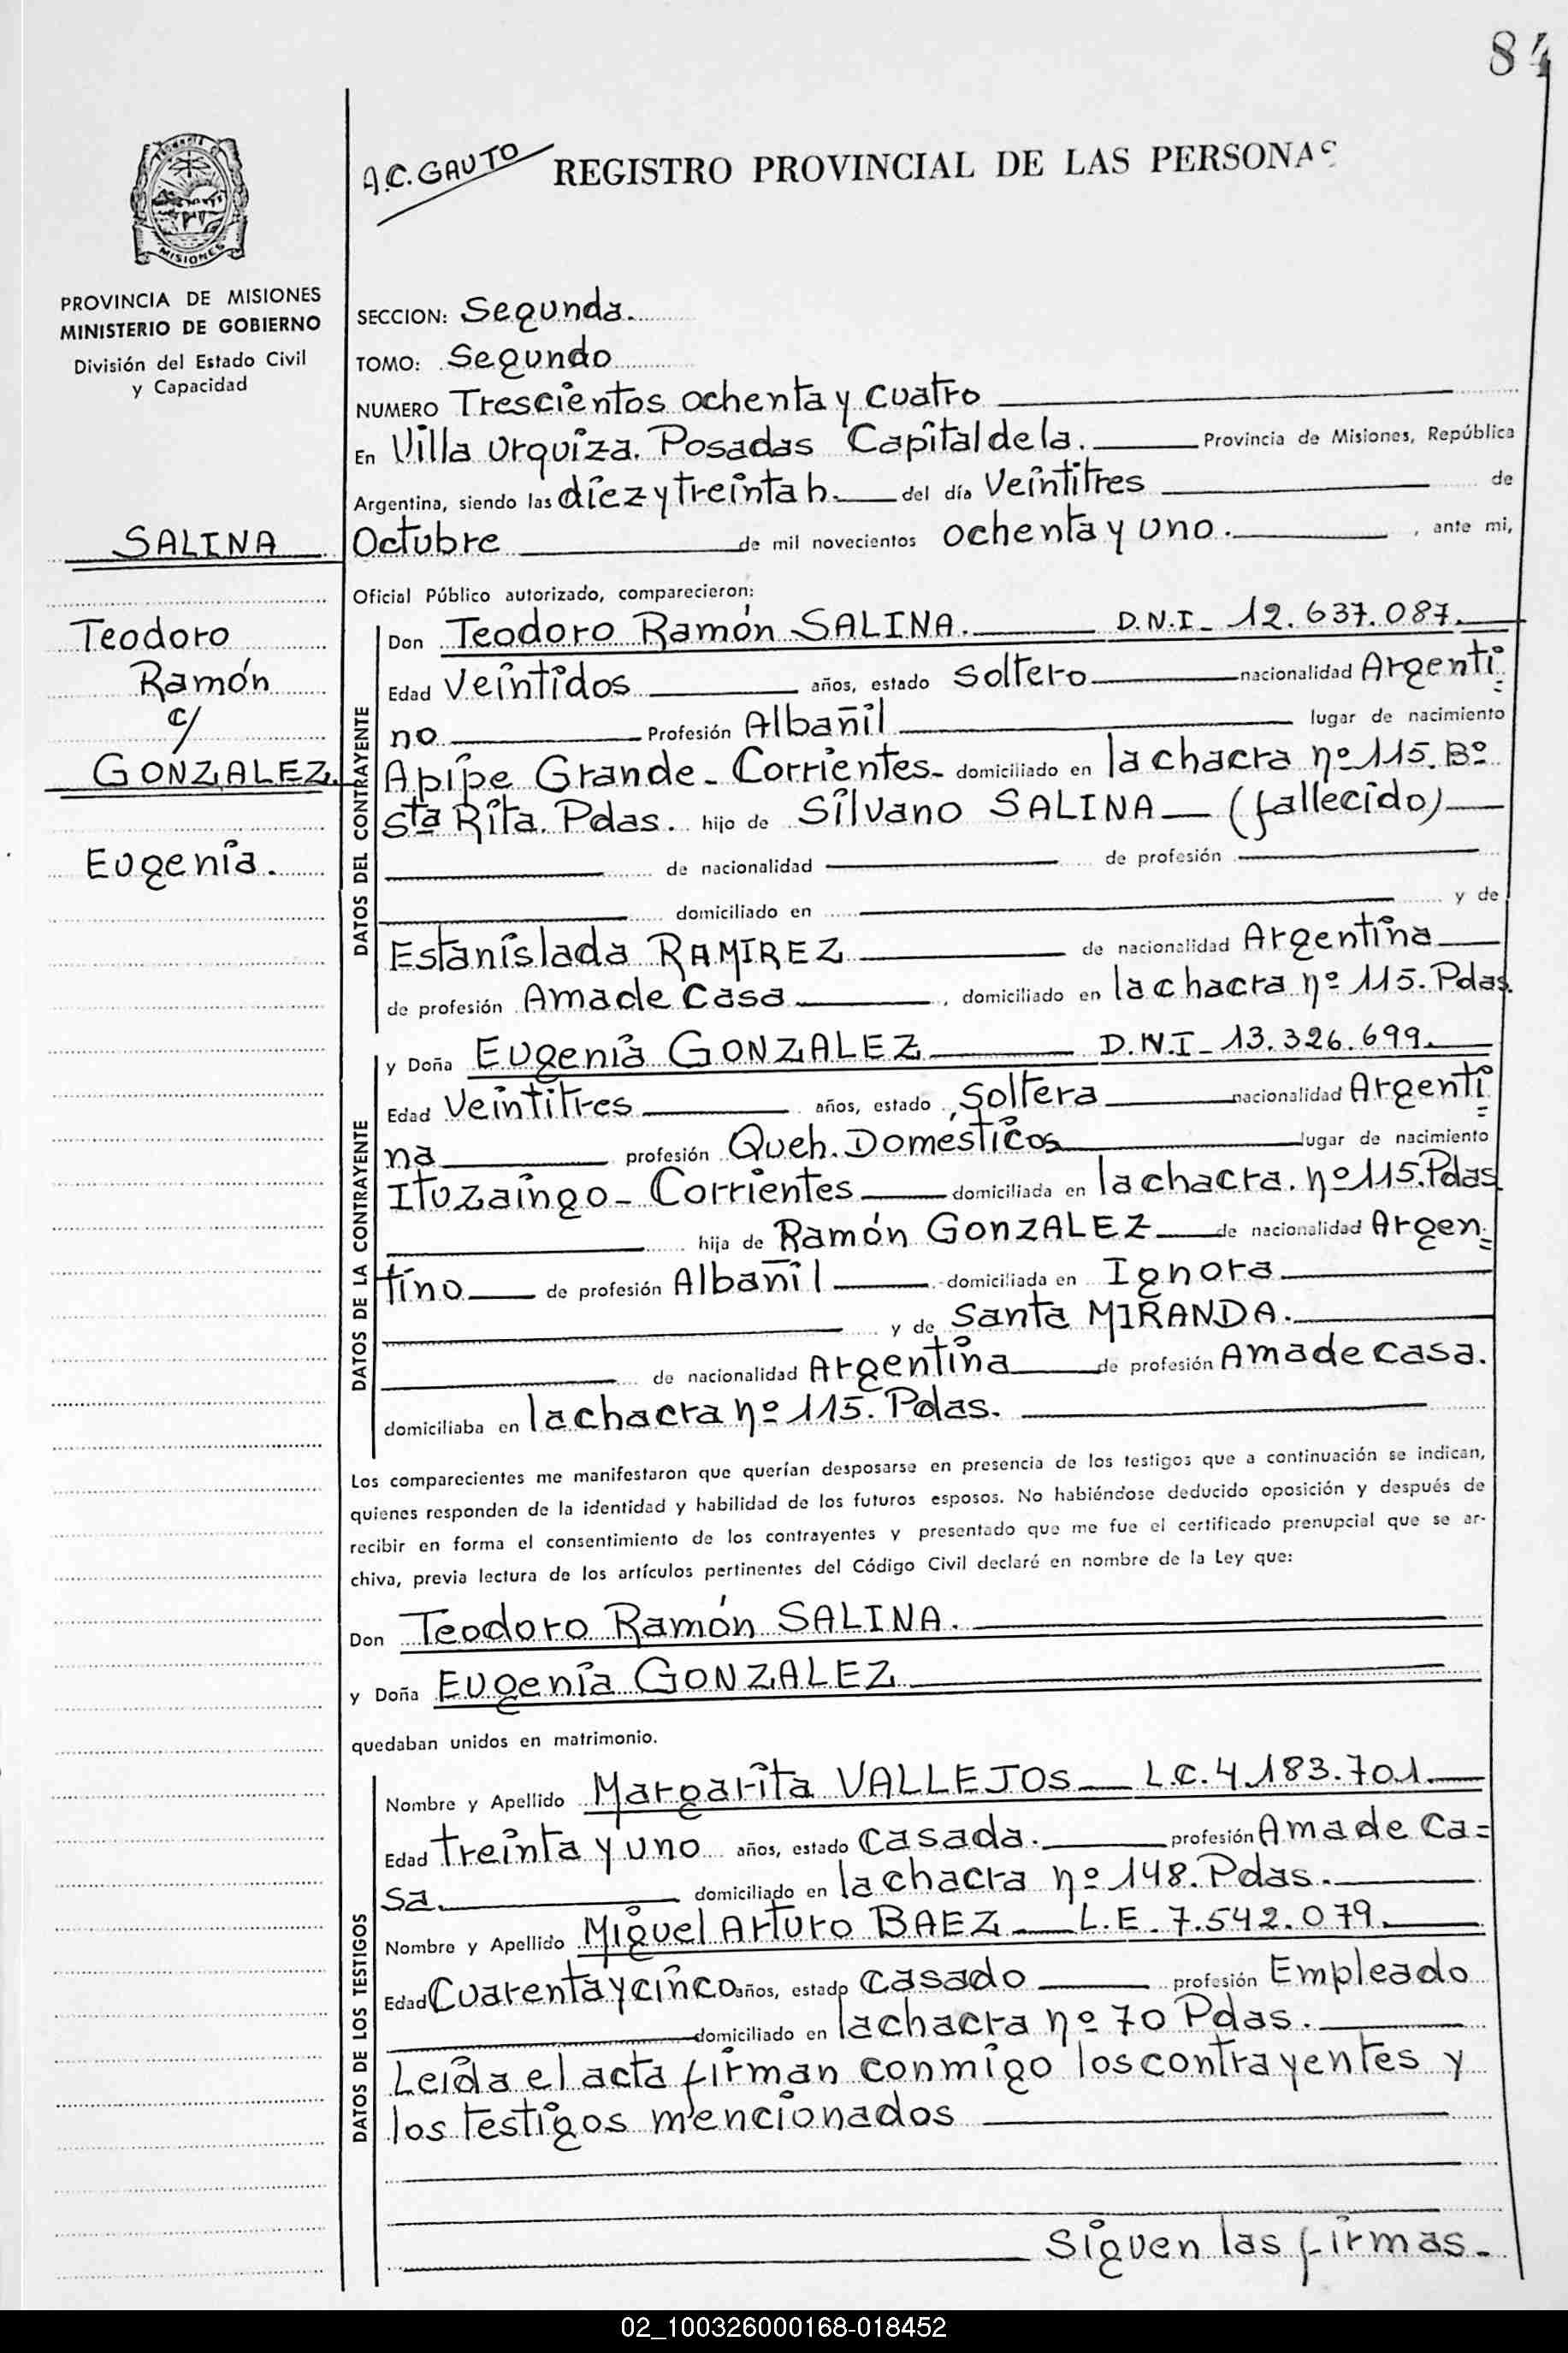 84
A.C. GAUTO
REGISTRO PROVINCIAL DE LAS PERSONAS
MISIONES
PROVINCIA DE MISIONES
MINISTERIO DE GOBIERNO
División del Estado Civil
y Capacidad
SALINA
Teodoro
Ramón
c/
GONZALEZ.
Eugenia.
SECCION: Segunda.
TOMO: Segundo
NUMERO Trescientos ochenta y cuatro
En Villa Urquiza. Posadas Capital de la. Provincia de Misiones, República
Argentina, siendo las diez y treinta h. del día Veintitres de
Octubre de mil novecientos ochenta y uno. , ante mi,
Oficial Público autorizado, comparecieron:
DATOS DEL CONTRAYENTE
Don Teodoro Ramón SALINA. D.N.I - 12.637.087.
Edad Veintidos años, estado Soltero nacionalidad Argenti=
no Profesión Albañil lugar de nacimiento
Apipe Grande - Corrientes - domiciliado en la chacra nº 115. Bº
Sta Rita. Pdas. hijo de Silvano SALINA (fallecido)
de nacionalidad de profesión
domiciliado en y de
Estanislada RAMIREZ de nacionalidad Argentina
de profesión Ama de Casa , domiciliado en la chacra nº 115. Pdas.
DATOS DE LA CONTRAYENTE
y Doña Eugenia GONZALEZ D.N.I - 13.326.699.
Edad Veintitres años, estado Soltera nacionalidad Argenti=
na profesión Queh. Domésticos lugar de nacimiento
Ituzaingo - Corrientes domiciliada en la chacra. nº 115. Pdas
hija de Ramón GONZALEZ de nacionalidad Argen=
tino de profesión Albañil domiciliada en Ignora
y de Santa MIRANDA.
de nacionalidad Argentina de profesión Ama de casa.
domiciliaba en la chacra nº 115. Pdas.
Los comparecientes me manifestaron que querían desposarse en presencia de los testigos que a continuación se indican,
quienes responden de la identidad y habilidad de los futuros esposos. No habiéndose deducido oposición y después de
recibir en forma el consentimiento de los contrayentes y presentado que me fue el certificado prenupcial que se ar-
chiva, previa lectura de los artículos pertinentes del Código Civil declaré en nombre de la Ley que:
Don Teodoro Ramón SALINA.
y Doña Eugenia GONZALEZ
quedaban unidos en matrimonio.
DATOS DE LOS TESTIGOS
Nombre y Apellido Margarita VALLEJOS L.C. 4.183.701.
Edad treinta y uno años, estado Casada. profesión Ama de Ca=
sa. domiciliado en la chacra nº 148. Pdas.
Nombre y Apellido Miguel Arturo BAEZ L.E. 7.542.079.
Edad Cuarenta y cinco años, estado Casado profesión Empleado
domiciliado en la chacra nº 70 Pdas.
Leida el acta firman conmigo los contrayentes y
los testigos mencionados
Siguen las firmas.
02_100326000168-018452